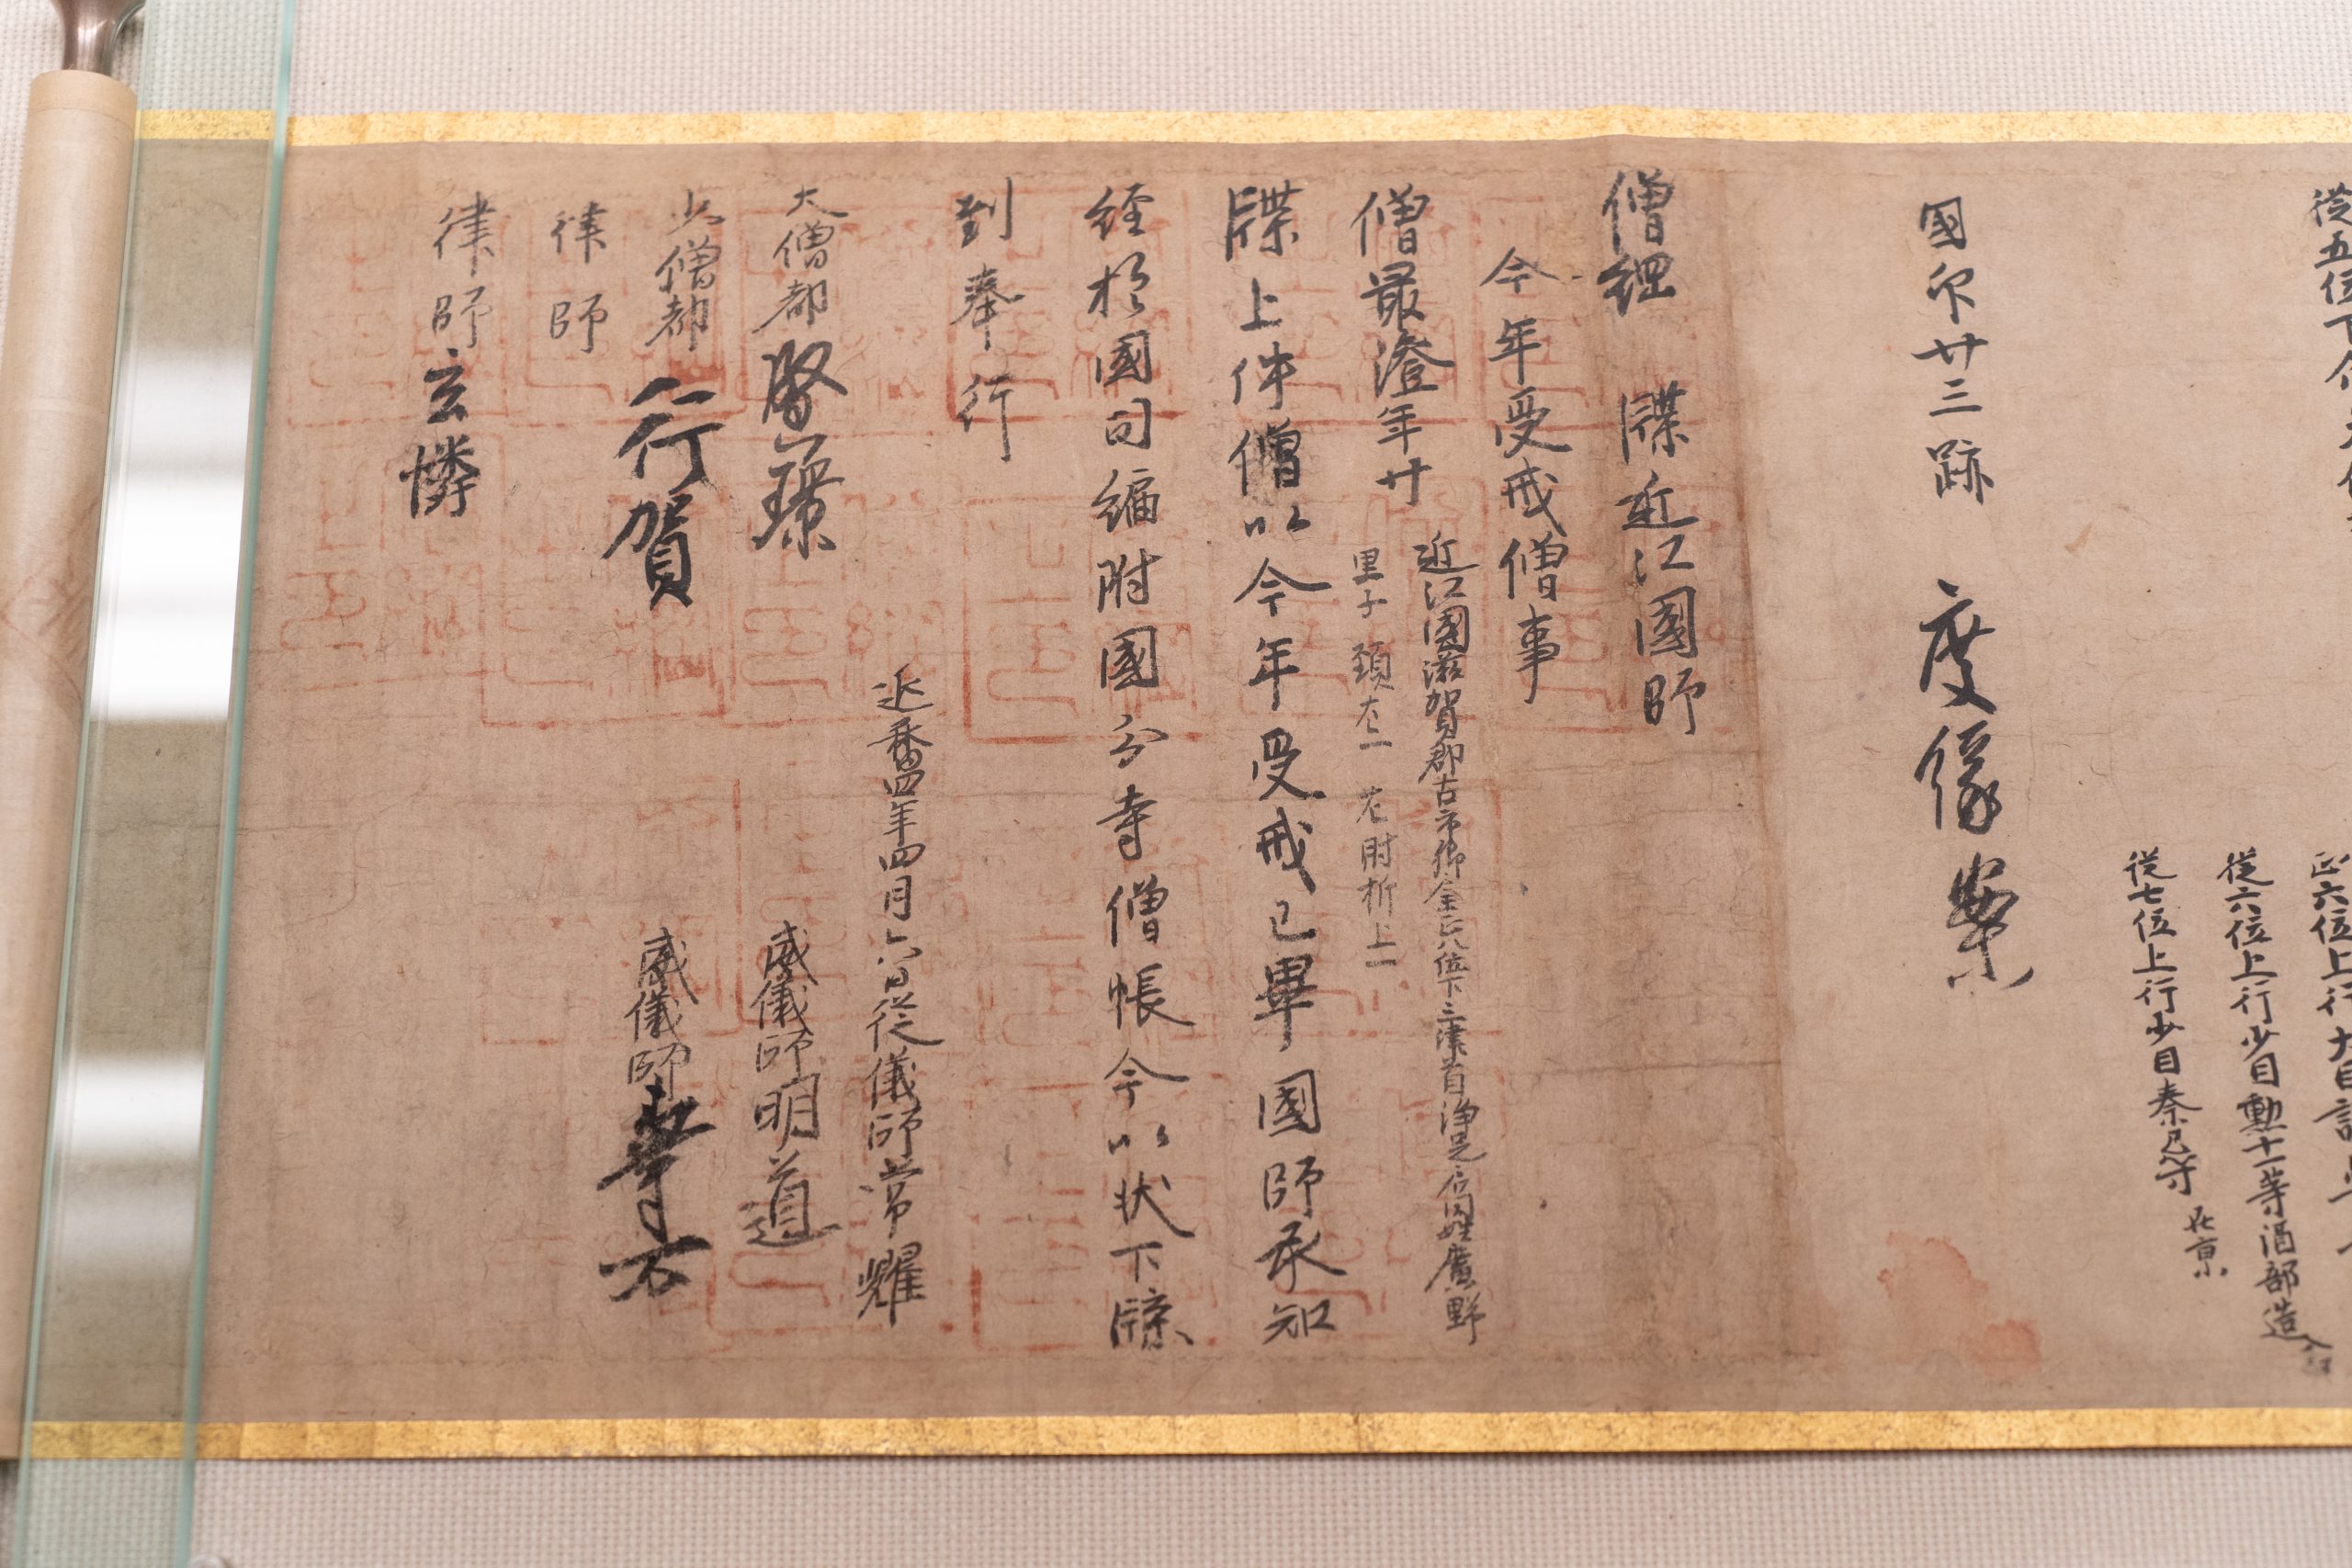 従五位下
正六位上行大目
従六位上行少目勲十一等酒部造
従七位上行少目秦忌寸 在京
國印廿三跡 度縁案
僧綱 牒近江國師
今年受戒僧事
僧最澄年廿 近江國滋賀郡古市郷正八位下三津首浄足戸同姓廣野
黒子 頚左一 左肘折上一
牒上件僧以今年受戒已畢國師承知
経於國司編附國分寺僧帳今以状下牒
到奉行
延暦四年四月六日従儀師常耀
大僧都賢璟 威儀師明道
少僧都行賀 威儀師
律師
律師玄憐